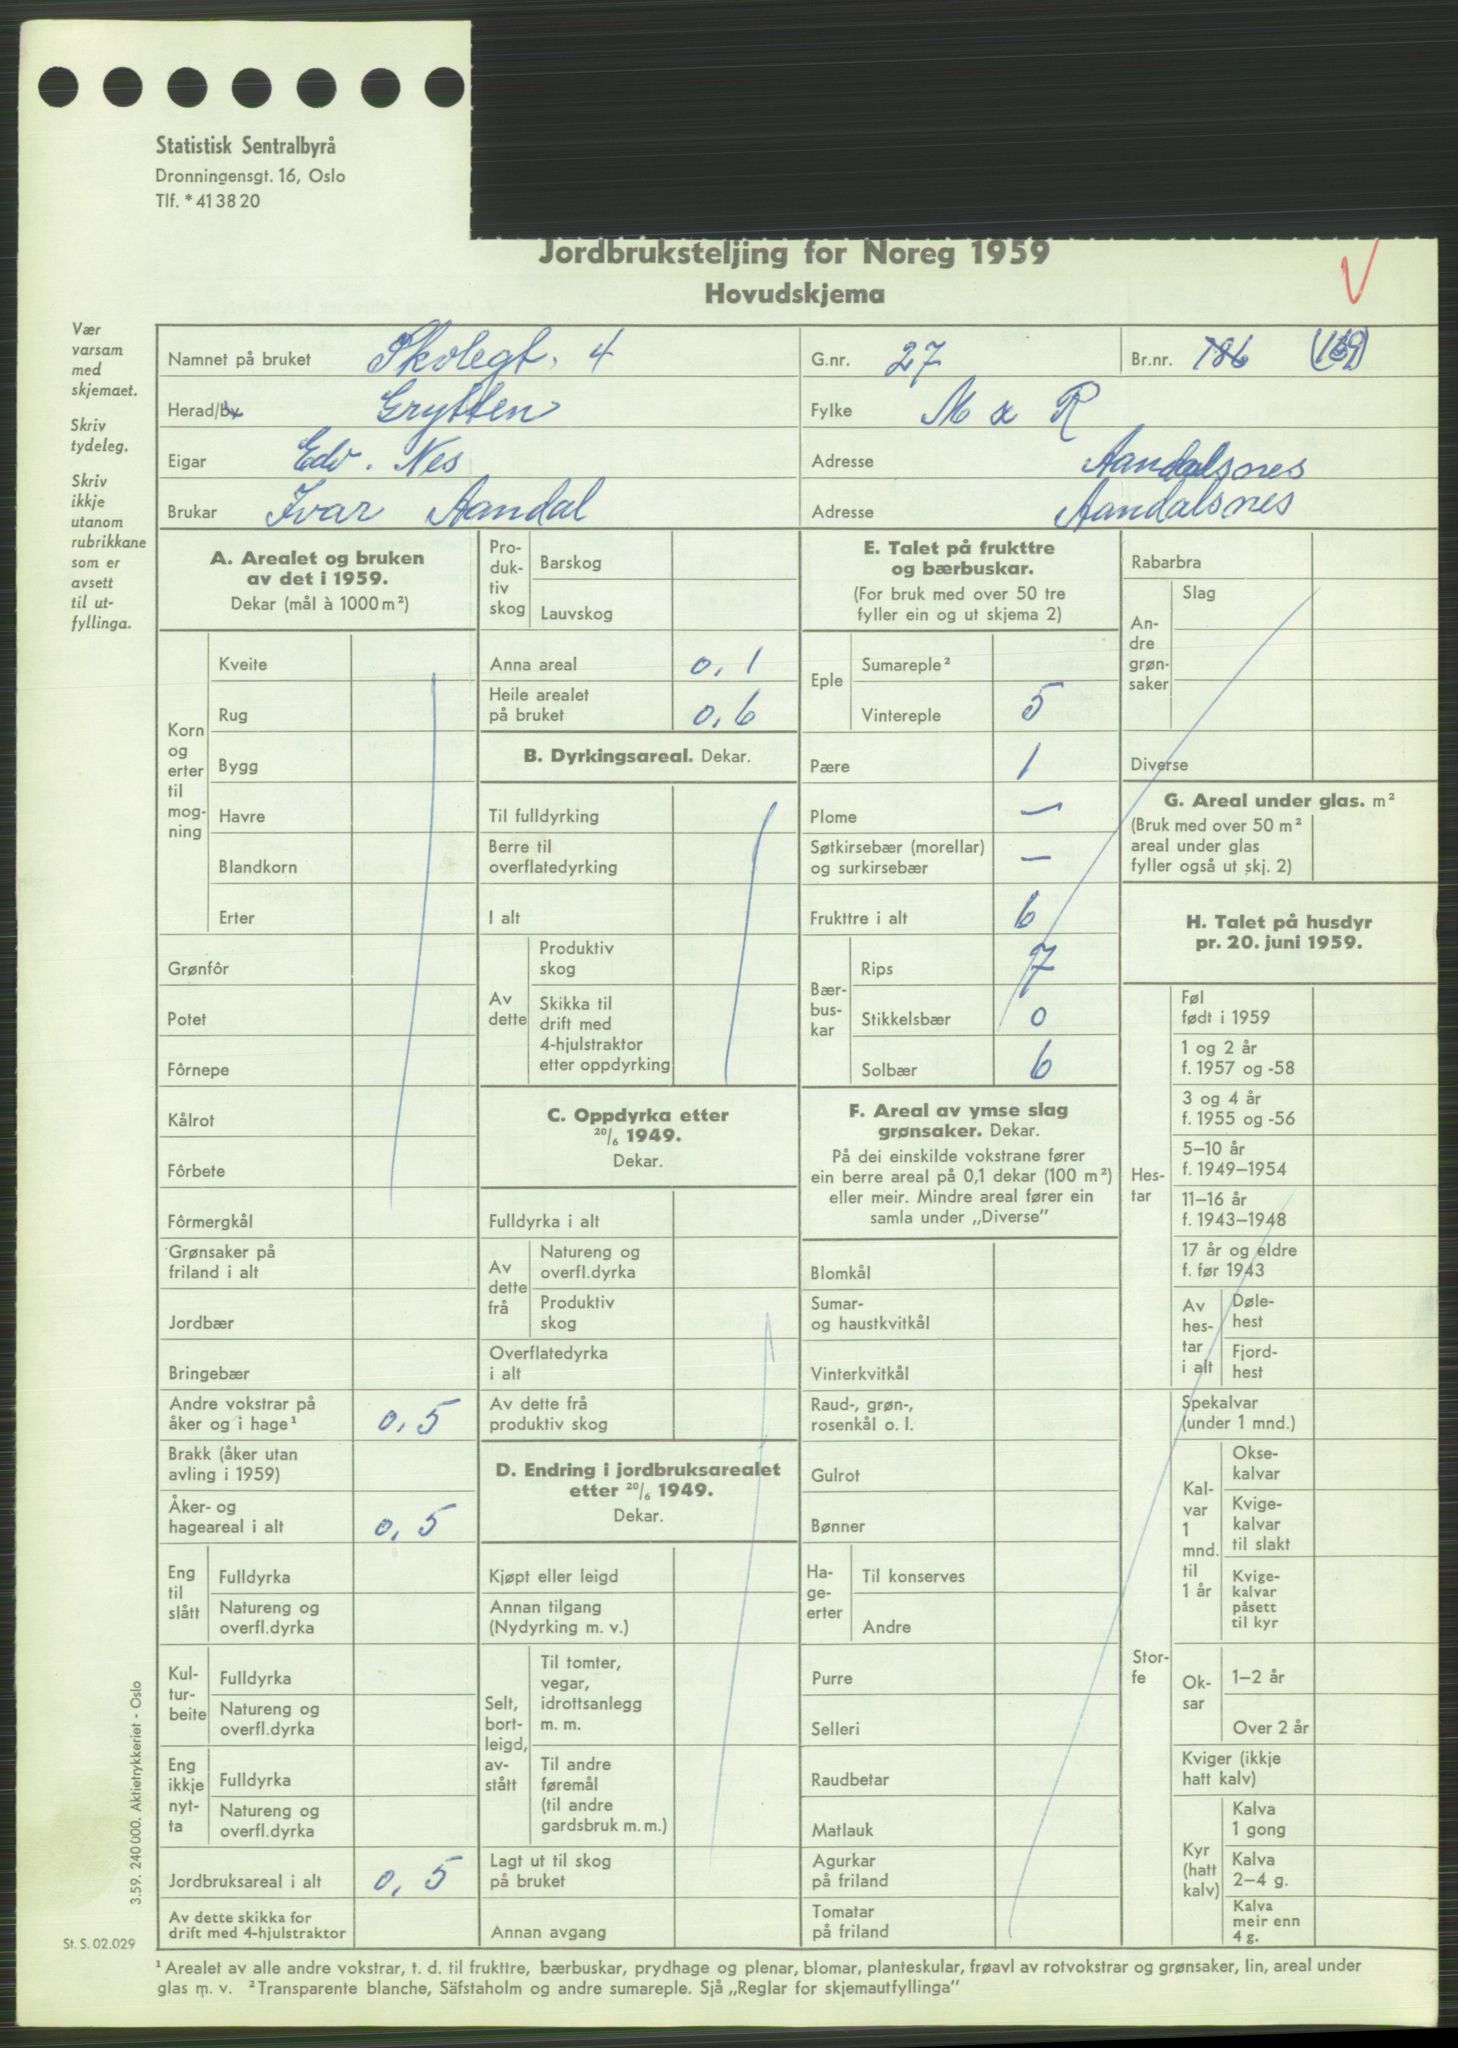 Statistisk Sentralbyrå
Dronningensgt. 16, Oslo
Tlf. * 41 38 20
Jordbruksteljing for Noreg 1959
Hovudskjema
Vær
varsam
med
skjemaet.
Skriv
tydeleg.
Skriv
ikkje
utanom
rubrikkane
som er
avsett
til ut-
fyllinga.
Namnet på bruket Skolegt. 4 G.nr. 27 Br.nr. 186 (139)
Herad/by Grytten Fylke M & R
Eigar Edv. Nes Adresse Aandalsnes
Brukar Ivar Aandal Adresse Aandalsnes
A. Arealet og bruken
av det i 1959.
Dekar (mål à 1000 m²)
Korn
og
erter
til
mog-
ning
Kveite
Rug
Bygg
Havre
Blandkorn
Erter
Grønfôr
Potet
Fôrnepe
Kålrot
Fôrbete
Fôrmergkål
Grønsaker på
friland i alt
Jordbær
Bringebær
Andre vokstrar på
åker og i hage¹ 0,5
Brakk (åker utan
avling i 1959)
Åker- og
hageareal i alt 0,5
Eng
til
slått
Fulldyrka
Natureng og
overfl.dyrka
Kul-
tur-
beite
Fulldyrka
Natureng og
overfl.dyrka
Eng
ikkje
nyt-
ta
Fulldyrka
Natureng og
overfl.dyrka
Jordbruksareal i alt 0,5
Av dette skikka for
drift med 4-hjulstraktor
Pro-
duk-
tiv
skog
Barskog
Lauvskog
Anna areal 0,1
Heile arealet
på bruket 0,6
B. Dyrkingsareal. Dekar.
Til fulldyrking
Berre til
overflatedyrking
I alt
Av
dette
Produktiv
skog
Skikka til
drift med
4-hjulstraktor
etter oppdyrking
C. Oppdyrka etter
20/6 1949.
Dekar.
Fulldyrka i alt
Av
dette
frå
Natureng og
overfl.dyrka
Produktiv
skog
Overflatedyrka
i alt
Av dette frå
produktiv skog
D. Endring i jordbruksarealet
etter 20/6 1949.
Dekar.
Kjøpt eller leigd
Annan tilgang
(Nydyrking m. v.)
Selt,
bort-
leigd,
av-
stått
Til tomter,
vegar,
idrottsanlegg
m. m.
Til andre
føremål
(til andre
gardsbruk m. m.)
Lagt ut til skog
på bruket
Annan avgang
E. Talet på frukttre
og bærbuskar.
(For bruk med over 50 tre
fyller ein og ut skjema 2)
Eple
Sumareple²
Vintereple 5
Pære 1
Plome —
Søtkirsebær (morellar)
og surkirsebær —
Frukttre i alt 6
Bær-
bus-
kar
Rips 7
Stikkelsbær 0
Solbær 6
F. Areal av ymse slag
grønsaker. Dekar.
På dei einskilde vokstrane fører
ein berre areal på 0,1 dekar (100 m²)
eller meir. Mindre areal fører ein
samla under „Diverse”
Blomkål
Sumar-
og haustkvitkål
Vinterkvitkål
Raud-, grøn-,
rosenkål o. l.
Gulrot
Bønner
Ha-
ge-
erter
Til konserves
Andre
Purre
Selleri
Raudbetar
Matlauk
Agurkar
på friland
Tomatar
på friland
Rabarbra
An-
dre
grøn-
saker
Slag
Diverse
G. Areal under glas. m²
(Bruk med over 50 m²
areal under glas
fyller også ut skj. 2)
H. Talet på husdyr
pr. 20. juni 1959.
Hes-
tar
Føl
født i 1959
1 og 2 år
f. 1957 og -58
3 og 4 år
f. 1955 og -56
5–10 år
f. 1949–1954
11–16 år
f. 1943–1948
17 år og eldre
f. før 1943
Av
hes-
tar
i alt
Døle-
hest
Fjord-
hest
Stor-
fe
Spekalvar
(under 1 mnd.)
Kal-
var
1
mnd.
til
1 år
Okse-
kalvar
Kvige-
kalvar
til slakt
Kvige-
kalvar
påsett
til kyr
Ok-
sar
1–2 år
Over 2 år
Kviger (ikkje
hatt kalv)
Kyr
(hatt
kalv)
Kalva
1 gong
Kalva
2–4 g.
Kalva
meir enn
4 g.
3.59. 240 000. Aktietrykkeriet - Oslo
St. S. 02.029
¹ Arealet av alle andre vokstrar, t. d. til frukttre, bærbuskar, prydhage og plenar, blomar, planteskular, frøavl av rotvokstrar og grønsaker, lin, areal under
glas m. v. ² Transparente blanche, Säfstaholm og andre sumareple. Sjå „Reglar for skjemautfyllinga”